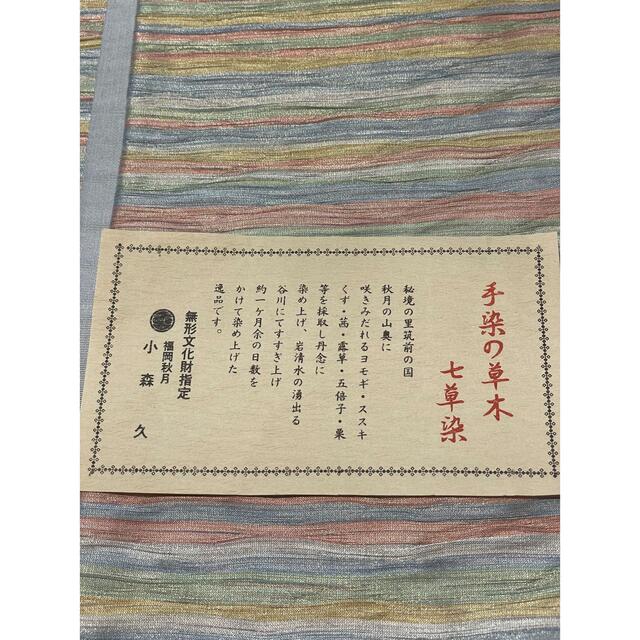 手染の草木
七草染
秘境の里筑前の国
秋月の山奥に
咲きみだれるヨモギ・ススキ
くず・茜・露草・五倍子・栗
等を採取し丹念に
染め上げ、岩清水の湧出る
谷川にてすすぎ上げ
約一ヶ月余の日数を
かけて染め上げた
逸品です。
無形文化財指定
福岡秋月
小森久